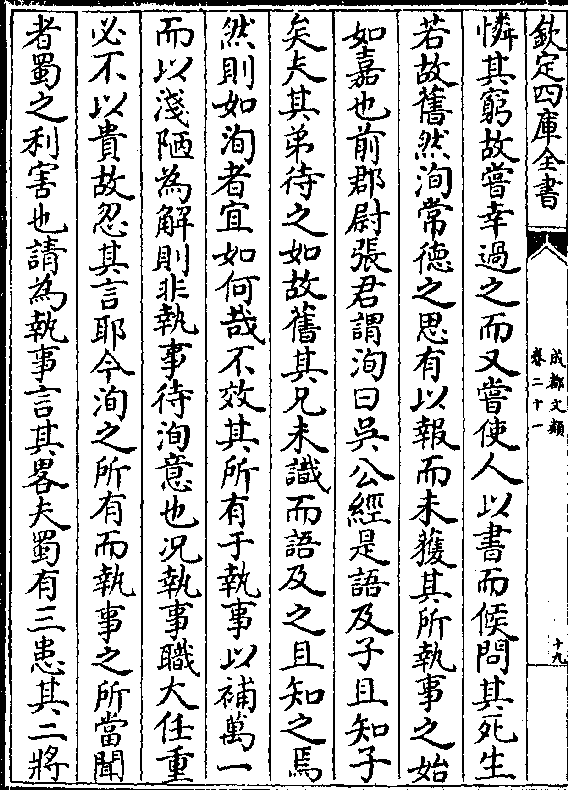 欽定四庫全書
成都文類
卷二十一
十九
憐其窮故嘗幸過之而又嘗使人以書而候問其死生
若故舊然洵常德之思有以報而未獲其所執事之始
如嘉也前郡尉張君謂洵曰吳公經是語及子且知子
矣夫其弟待之如故舊其兄未識而語及之且知之焉
然則如洵者宜如何哉不效其所有于執事以補萬一
而以淺陋為解則非執事待洵意也况執事職大任重
必不以貴故忍其言耶今洵之所有而執事之所當聞
者蜀之利害也請為執事言其畧夫蜀有三患其二將